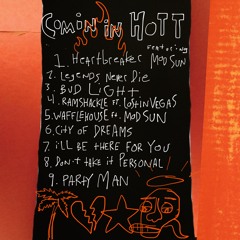 COMIN IN HOTT
featuring
1. Heartbreaker MOD SUN
2. Legends Never Die
3. BUD LIGHT
4. RAMSHACKLE FT. LOSTINVEGAS
5. WAFFLEHOUSE FT. MOD SUN
6. CITY OF DREAMS
7. i'LL BE THERE FOR YOU
8. Don't take it PERSONAL!
9. PARTY MAN